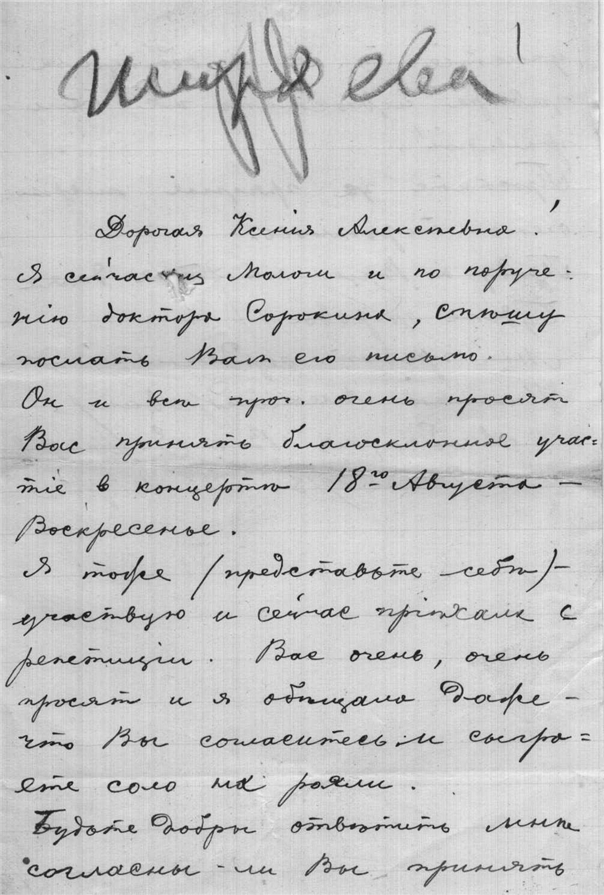 Ширяева!
Дорогая Ксенія Алексѣевна!
Я сейчас из Мологи и по поруче-
нію доктора Сорокина, спѣшу
послать Вам его письмо.
Он и всѣ проч. очень просят
Вас принять благосклонное учас=
тіе в концертѣ 18го Августа —
Воскресенье.
Я тоже (представьте себѣ) —
участвую и сейчас пріѣхала с
репетиціи. Вас очень, очень
просят и я обѣщала даже —
что Вы согласитесь и сыгра=
ете соло на рояли.
Будьте добры отвѣтить мнѣ
согласны-ли Вы принять